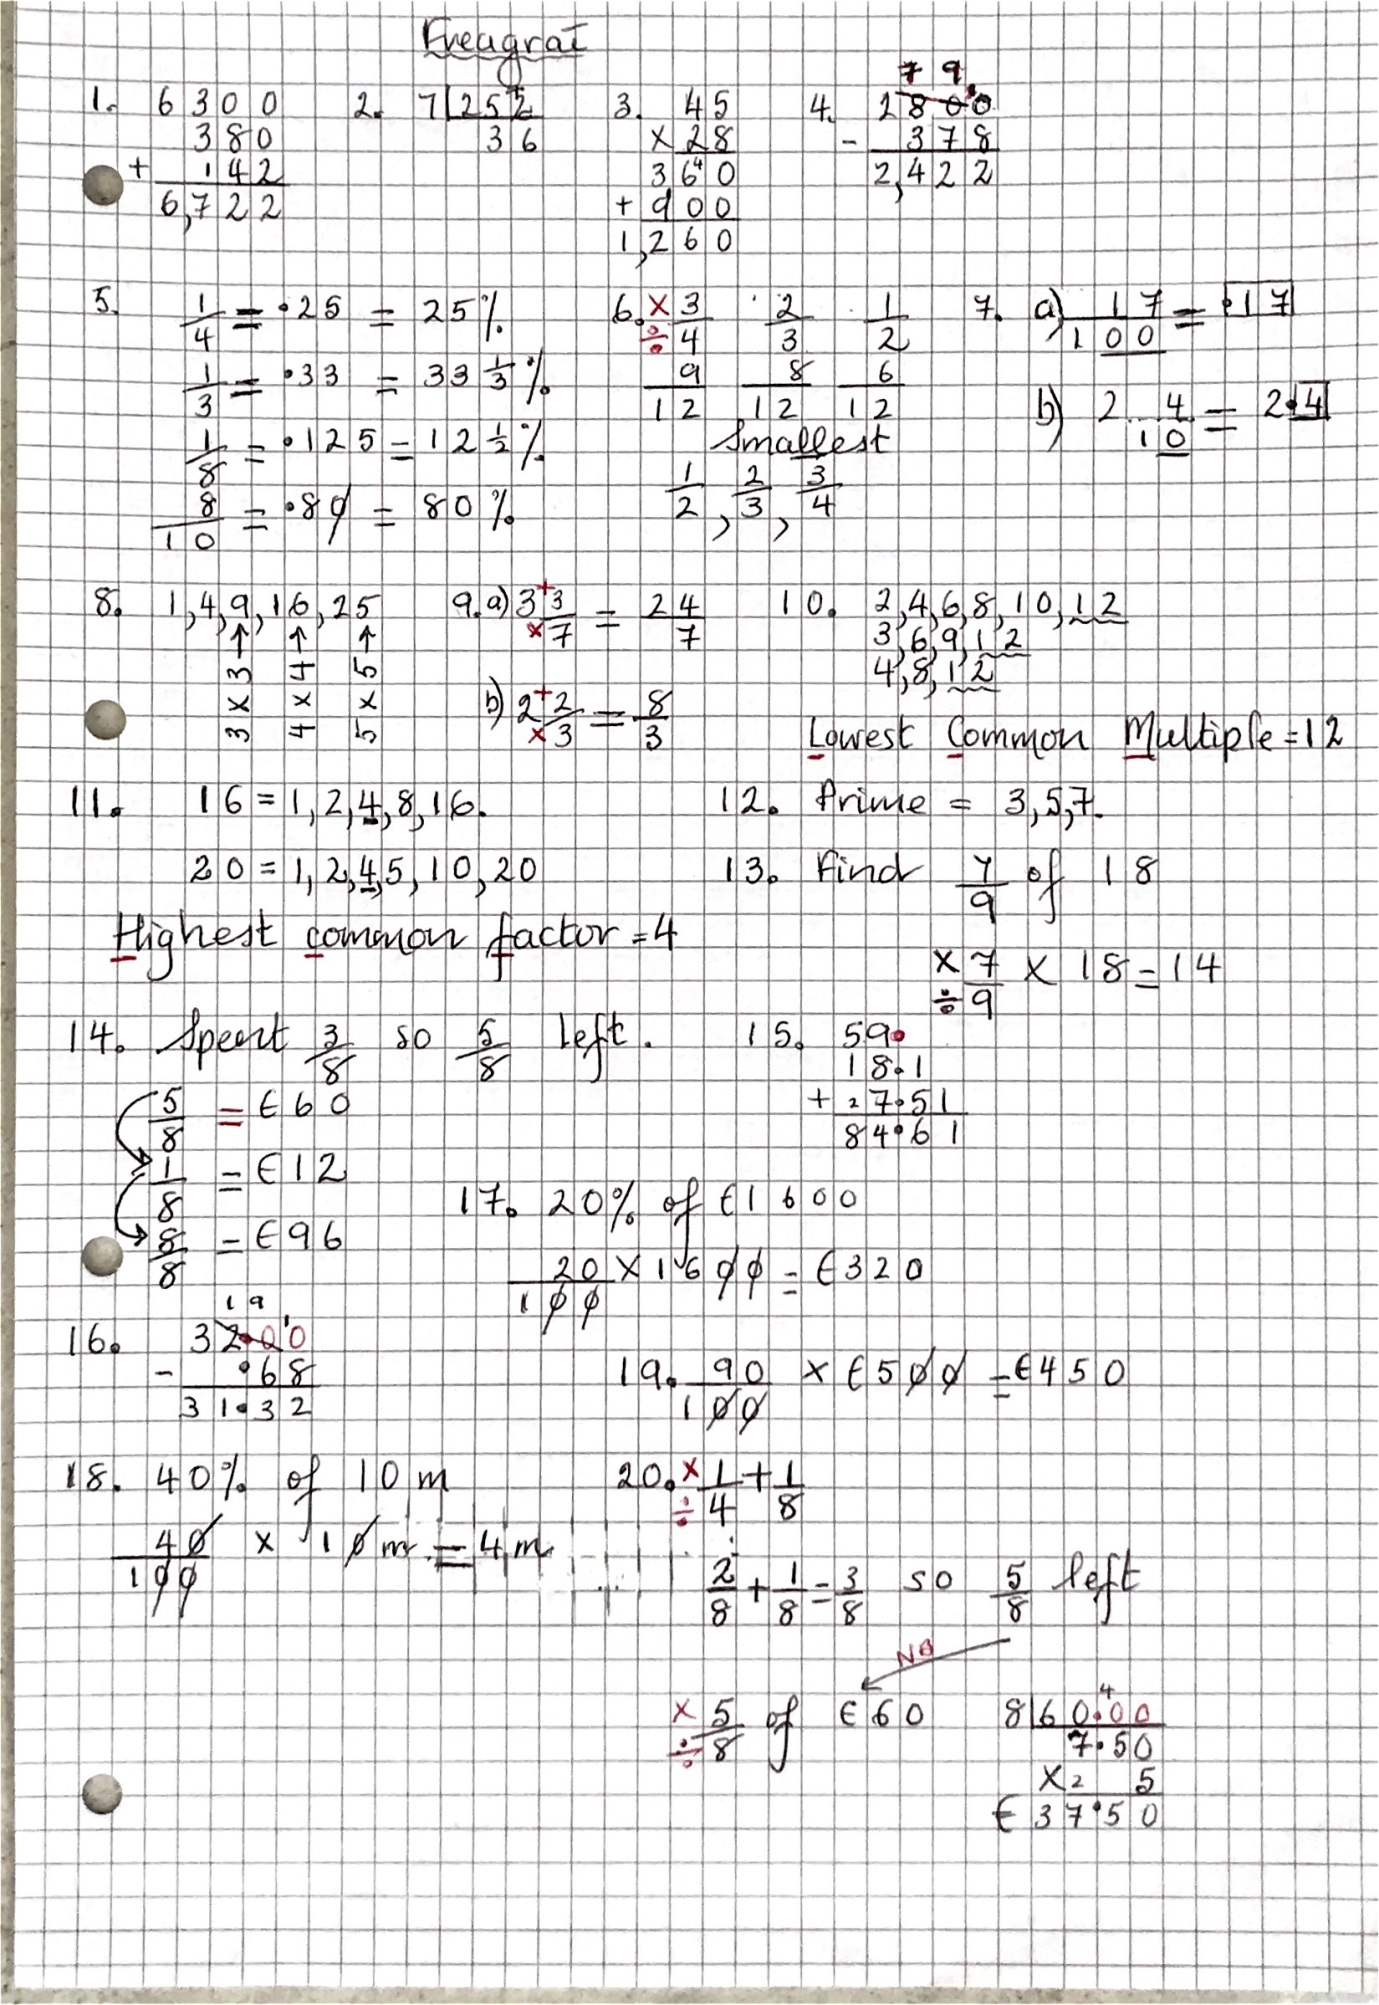 Freagraí
1. 6300
380
+ 142
6,722
2. 7 252
36
3. 45
x 28
360
+ 900
1,260
4. 2800
- 378
2,422
5. 1/4 = .25 = 25%
1/3 = .33 = 33 1/3%
1/8 = .125 = 12 1/2%
8/10 = .80 = 80%
6. x ÷ 3/4 2/3 1/2
9/12 8/12 6/12
Smallest
1/2, 2/3, 3/4
7. a) 17/100 = .17
b) 2 4/10 = 2.4
8. 1,4,9,16,25
3x3 4x4 5x5
9. a) 3 + x 3/7 = 24/7
b) 2 + x 2/3 = 8/3
10. 2,4,6,8,10,12
3,6,9,12
4,8,12
Lowest Common Multiple = 12
11. 16 = 1,2,4,8,16.
20 = 1,2,4,5,10,20
Highest common factor = 4
12. Prime = 3,5,7.
13. Find 7/9 of 18
x ÷ 7/9 x 18 = 14
14. Spent 3/8 so 5/8 left.
5/8 = €60
1/8 = €12
8/8 = €96
15. 59.
18.1
+ 27.51
84.61
16. 32.00
- .68
31.32
17. 20% of €1600
20/100 x 1600 = €320
18. 40% of 10m
40/100 x 10m = 4m
19. 90/100 x €500 = €450
20. x ÷ 1/4 + 1/8
2/8 + 1/8 = 3/8 so 5/8 left
NB
x ÷ 5/8 of €60
8 60.00
7.50
x 5
€37.50